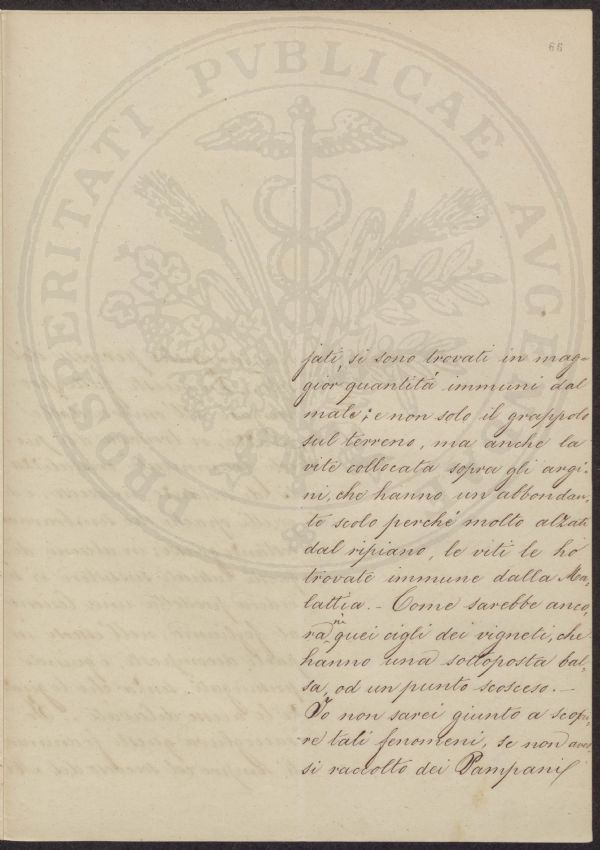 66
PROSPERITATI PVBLICAE AVGENDAE
jati, si sono trovati in mag-
gior quantità immuni dal
male; e non solo il grappolo
sul terreno, ma anche la
vite collocata sopra gli argi-
ni, che hanno un abbondan-
te scolo perché molto alzati
dal ripiano, le viti le ho
trovate immune dalla Ma-
lattia. - Come sarebbe anco-
ra in quei cigli dei vigneti, che
hanno una sottoposta bal-
sa, od un punto scosceso. -
Io non sarei giunto a scopri-
re tali fenomeni, se non aves-
si raccolto dei Pampani